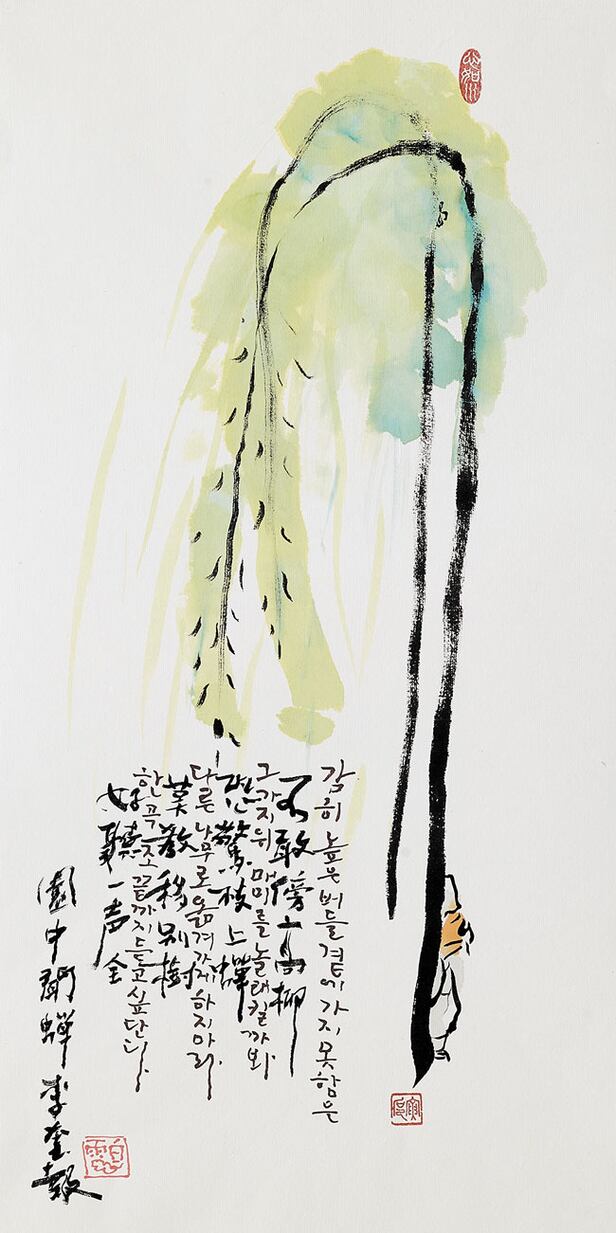 감히 높은 버들 곁에 가지 못함은
不敢傍高柳
그 가지 위 매미를 놀래킬까봐.
恐驚枝上蟬
다른 나무로 옮겨가게 하지마라.
莫教移別樹
한 곡조 끝까지 듣고 싶단다.
好聽一声全
園中聞蟬 李奎報
白雲